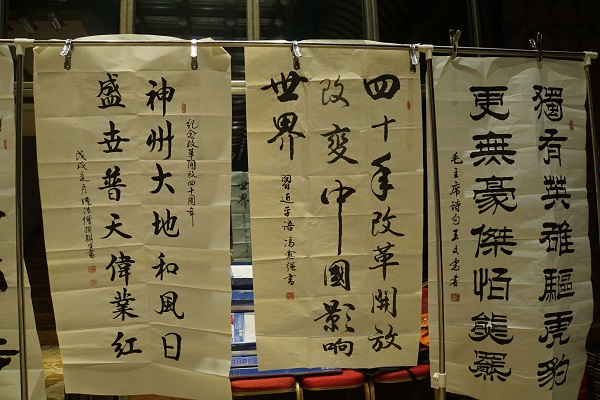 纪念改革開放四十周年
神州大地和風日
盛世普天偉業紅
戊戌
四十年改革開放
改變中國影响
世界
習近平语 書
獨有英雄驅虎豹
更無豪傑怕熊羆
毛主席诗句 王文 書